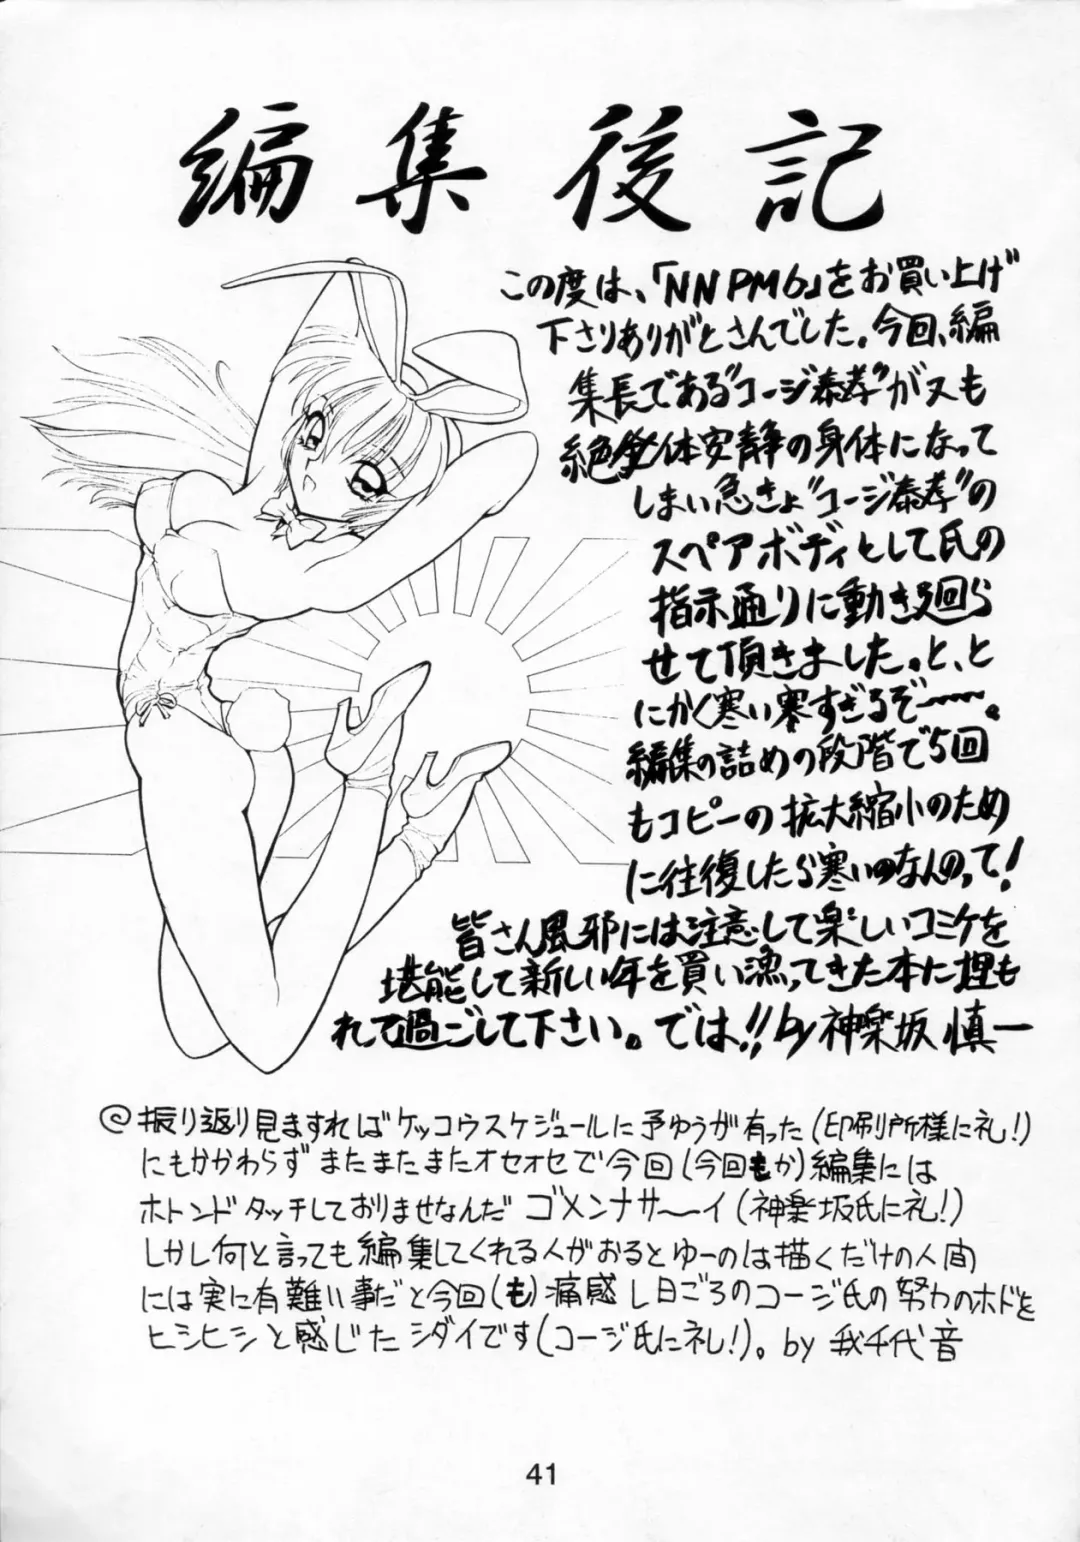 編集後記
この度は、「NNPM6」をお買い上げ
下さりありがとさんでした。今回、編
集長である“コージ泰孝”が又も
絶対体安静の身体になって
しまい急きょ“コージ泰孝”の
スペアボディとして氏の
指示通りに動き廻ら
せて頂きました。と、と
にかく寒い寒すぎるぞ〜〜。
編集の詰めの段階で5回
もコピーの拡大縮小のため
に往復したら寒いのなんのって!
皆さん風邪には注意して楽しいコミケを
堪能して新しい年を買い漁ってきた本に埋も
れて過ごして下さい。では!! by 神楽坂 慎一
振り返り見ますればケッコウスケジュールに予ゆうが有った(印刷所様に礼!)
にもかかわらずまたまたまたオセオセで今回(今回もか)編集には
ホトンドタッチしておりませなんだ ゴメンナサ〜イ(神楽坂氏に礼!)
しかし何と言っても編集してくれる人がおるとゆーのは描くだけの人間
には実に有難い事だと今回(も)痛感し日ごろのコージ氏の努力のホドを
ヒシヒシと感じたシダイです(コージ氏に礼!)。by 我千代音
41